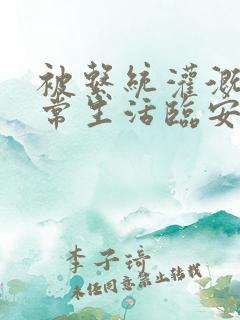 被系統灌溉
常生活臨安
李子琦
未任同意禁止轉載